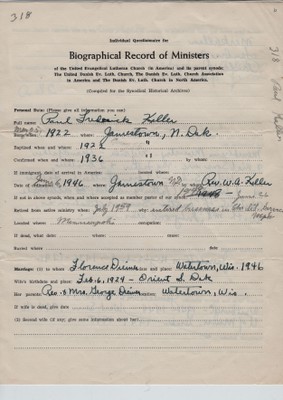 318
318
Paul Keller
Individual Questionnaire for
Biographical Record of Ministers
of the United Evangelical Lutheran Church (in America) and its parent synods:
The United Danish Ev. Luth. Church, The Danish Ev. Luth. Church Association
in America and The Danish Ev. Luth. Church in North America.
(Compiled for the Synodical Historical Archives)
Personal Data: (Please give all information you can)
Full name: Paul Frederick Keller
Born when: 1922 where: Jamestown, N. Dak.
Baptized when and where: 1922
Confirmed when and where: 1936
If immigrant, date of arrival in America: located where:
Date of 1946 where: Jamestown N.D. by Rev. W. A. Keller
If not in above synods, when and where accepted as member of parent synods: June
Retired from active ministry when: July 1959 why: entered business in
Located where: Minneapolis occupation:
If dead, what date: where: cause:
Buried where date
Marriage: (1) to whom Florence Dienes and place: Watertown, Wis. 1946
Wife's birthday and place: Feb. 6, 1924 - Orient S. Dak
Her parents: Rev. & Mrs. George Dienes Watertown, Wis.
If wife is dead, give date
(2) Second wife (if any; give same information about her)